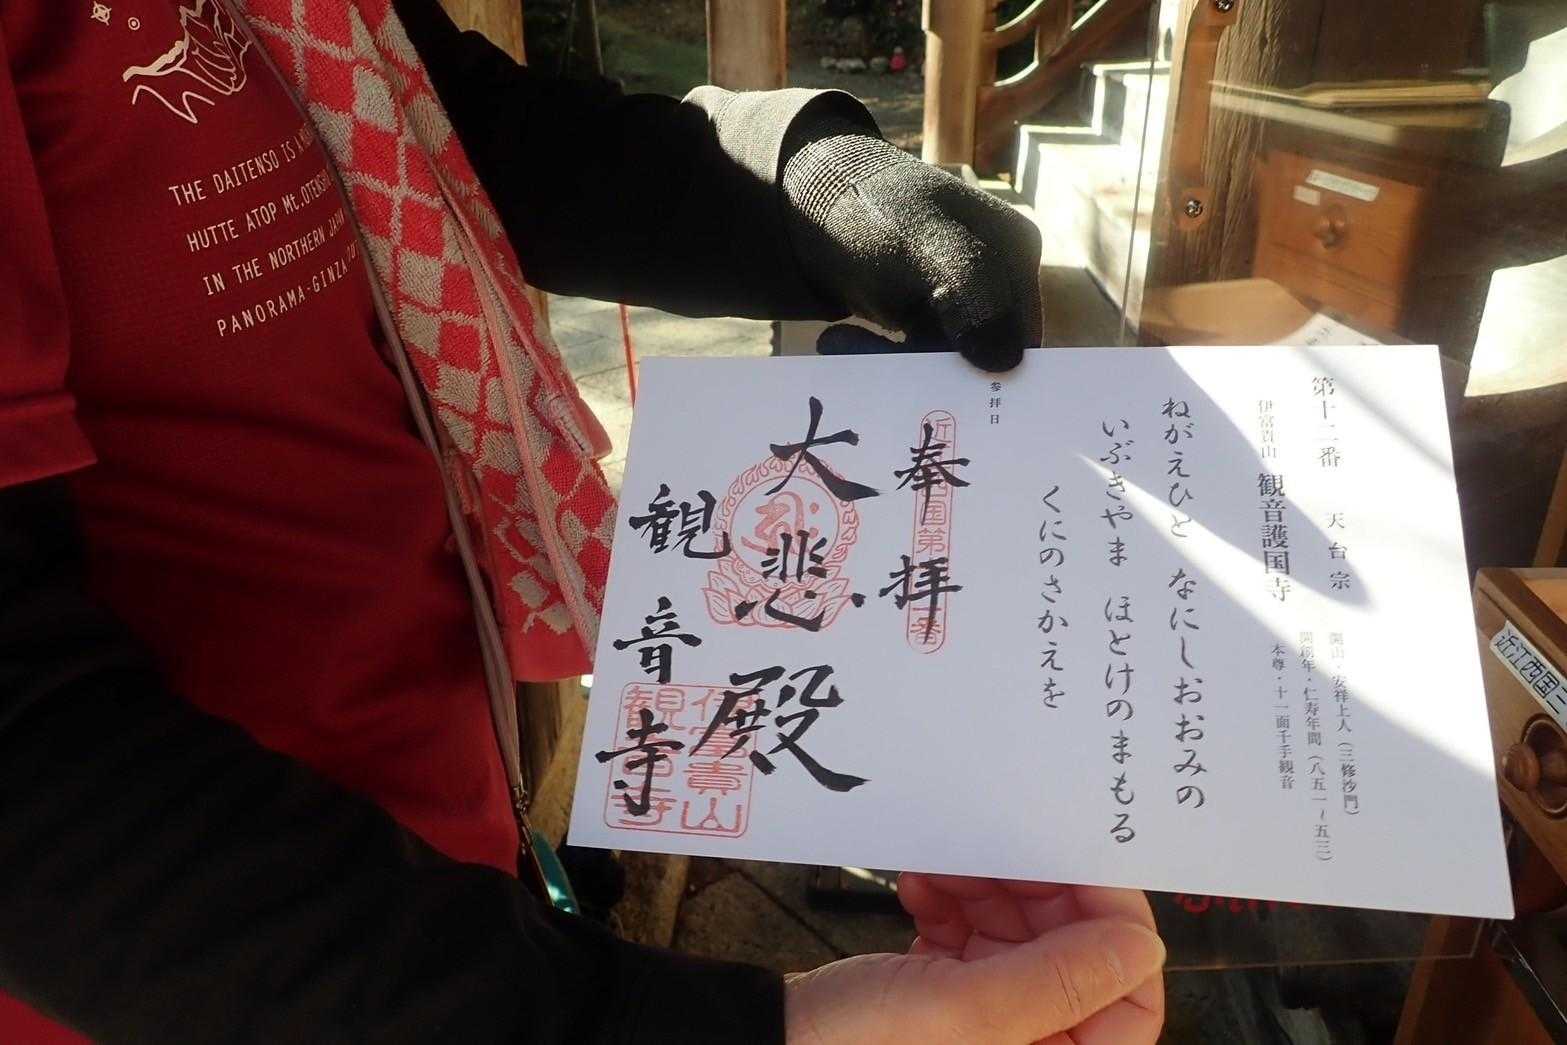 THE DAITENSO IS A
HUTTE ATOP Mt.OTENSH
IN THE NORTHERN JAPAN
PANORAMA-GINZA
第十二番　天台宗
伊富貴山　観音護国寺
開山・安祥上人（三修沙門）
開創年・仁寿年間（八五一～五三）
本尊・十一面千手観音
ねがえひと　なにしおおみの
いぶきやま　ほとけのまもる
くにのさかえを
参拝日
奉拝
近国第番
大悲殿
観音寺
伊富貴山
観音寺
近江西国二